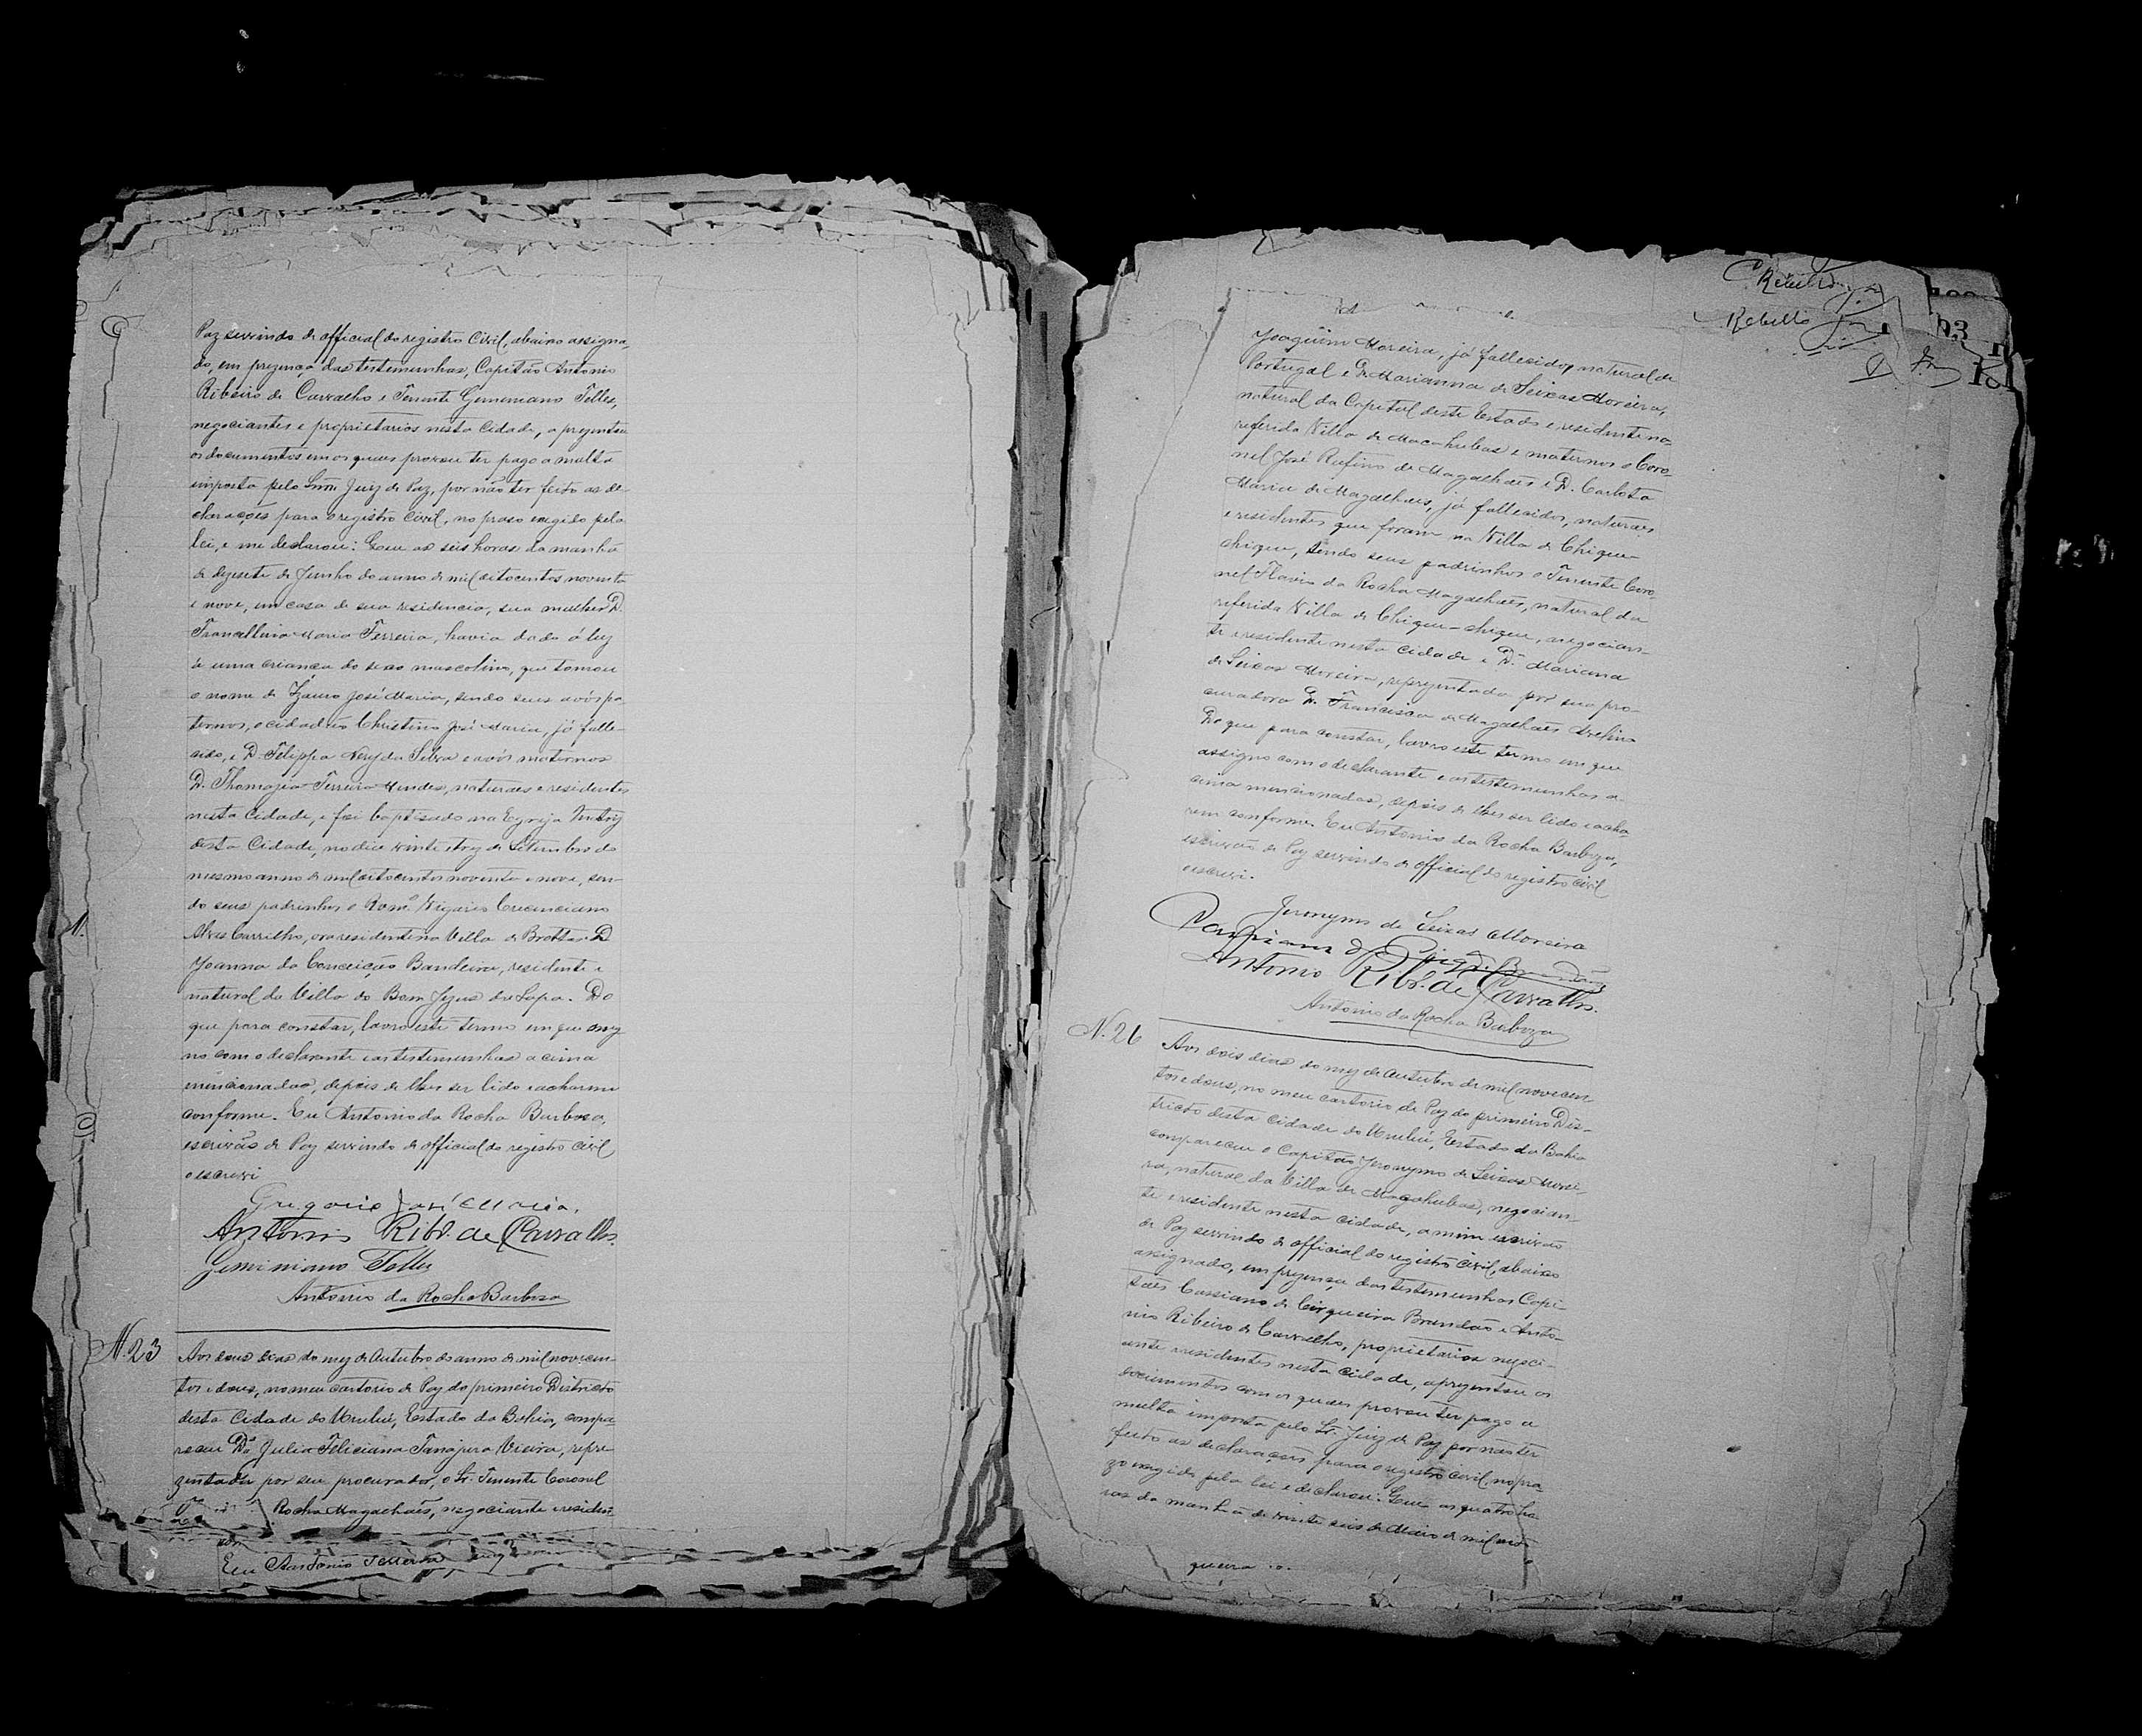 Paz servindo de official do registro Civil, abaixo assigna-
do, em prezença das testemunhas, Capitão Antonio
Ribeiro de Carvalho e Tenente Geminiano Telles,
negociantes e proprietarios nesta Cidade, aprezentou
os documentos em os quaes provou ter pago a multa
imposta pelo Snr. Juiz de Paz, por não ter feito as de-
clarações para o registro Civil, no praso exigido pela
lei, e me declarou: Que as seis horas da manhã
de dezesete de Junho do anno de mil oitocentos noventa
e nove, em casa de sua residencia, sua mulher D.
Francellina Maria Ferreira, havia dado á luz
á uma criança do sexo mascolino, que tomou
o nome de Lauro José Maria, sendo seus avós pa-
ternos, o cidadão Christino José Maria, já falle-
cido, e D. Felippa Nery da Silva e avós maternos
D. Thomazia Ferreira Mendes, naturaes e residentes
nesta Cidade, e foi baptisado na Egreja Matriz
desta Cidade, no dia vinte e trez de Setembro do
mesmo anno de mil oitocentos noventa e nove, sen-
do seus padrinhos o Revmº Vigario Crescenciano
Alves Carrilho, ora residente na Villa de Brottas e D.
Joanna da Conceição Bandeira, residente e
natural da Villa do Bom Jezus da Lapa. Do
que para constar, lavro este termo em que assig-
no com o declarante e as testemunhas acima
mencionadas, depois de lhes ser lido e acharem
conforme. Eu Antonio da Rocha Barbosa,
escrivão de Paz servindo de official do registro civil
o escrevi
Gregorio José Maria.
Antonio Ribr. de Carvalho.
Geminiano Telles
Antonio da Rocha Barboza
N. 23
Aos dous dias do mez de Outubro do anno de mil novecen-
tos e dous, no meu cartorio de Paz do primeiro Districto
desta Cidade do Urubú, Estado da Bahia, compa-
receu Dª Julia Feliciana Tanajura Vieira, repre-
zentada por seu procurador, o Sr. Tenente Coronel
Rocha Magalhães, negociante e residen-
Eu Antonio
Rebello
Rebello
Joaquim Moreira, já fallecido, natural de
Portugal e D. Marianna de Seixas Moreira,
natural da Capital deste Estado e residente na
referida Villa de Macahubas e maternos o Coro-
nel José Rufino de Magalhães e D. Carlota
Maria de Magalhães, já fallecidos, naturaes
e residentes que foram na Villa de Chique-
chique, sendo seus padrinhos o Tenente Coro-
nel Flavio da Rocha Magalhães, natural da
referida Villa de Chique-chique, negocian-
te e residente nesta cidade e Dª Mariana
de Seixas Moreira, reprezentada por sua pro-
curadora D. Francisca de Magalhães Avelino
Do que para constar, lavro este termo em que
assigno com o declarante e as testemunhas a-
cima mencionadas, depois de lhes ser lido e acha-
rem conforme. Eu Antonio da Rocha Barboza,
escrivão de Paz servindo de official do registro civil
o escrevi.
Jeronymo de Seixas Moreira
Antonio Ribr. de Carvalho.
Antonio da Rocha Barboza
N. 26
Aos dois dias do mez de Outubro de mil novecen-
tos e dous, no meu cartorio de Paz do primeiro Dis-
tricto desta cidade do Urubú, Estado da Bahia
compareceu o Capitão Jeronymo de Seixas Morei-
ra, natural da Villa de Macahubas, negocian-
te e residente nesta cidade, a mim escrivão
de Paz servindo de official do registro civil, abaixo
assignado, em prezença das testemunhas Capi-
tães Cassiano de Cirqueira Brandão e Anto-
nio Ribeiro de Carvalho, proprietarios negoci-
ante e residentes nesta cidade, aprezentou os
documentos com os quaes provou ter pago a
multa imposta pelo Sr. Juiz de Paz por não ter
feito as declarações para o registro civil no pra-
zo exigido pela lei e declarou: Que as quatro ho-
ras da manhã de vinte seis de Maio de mil oito
queira